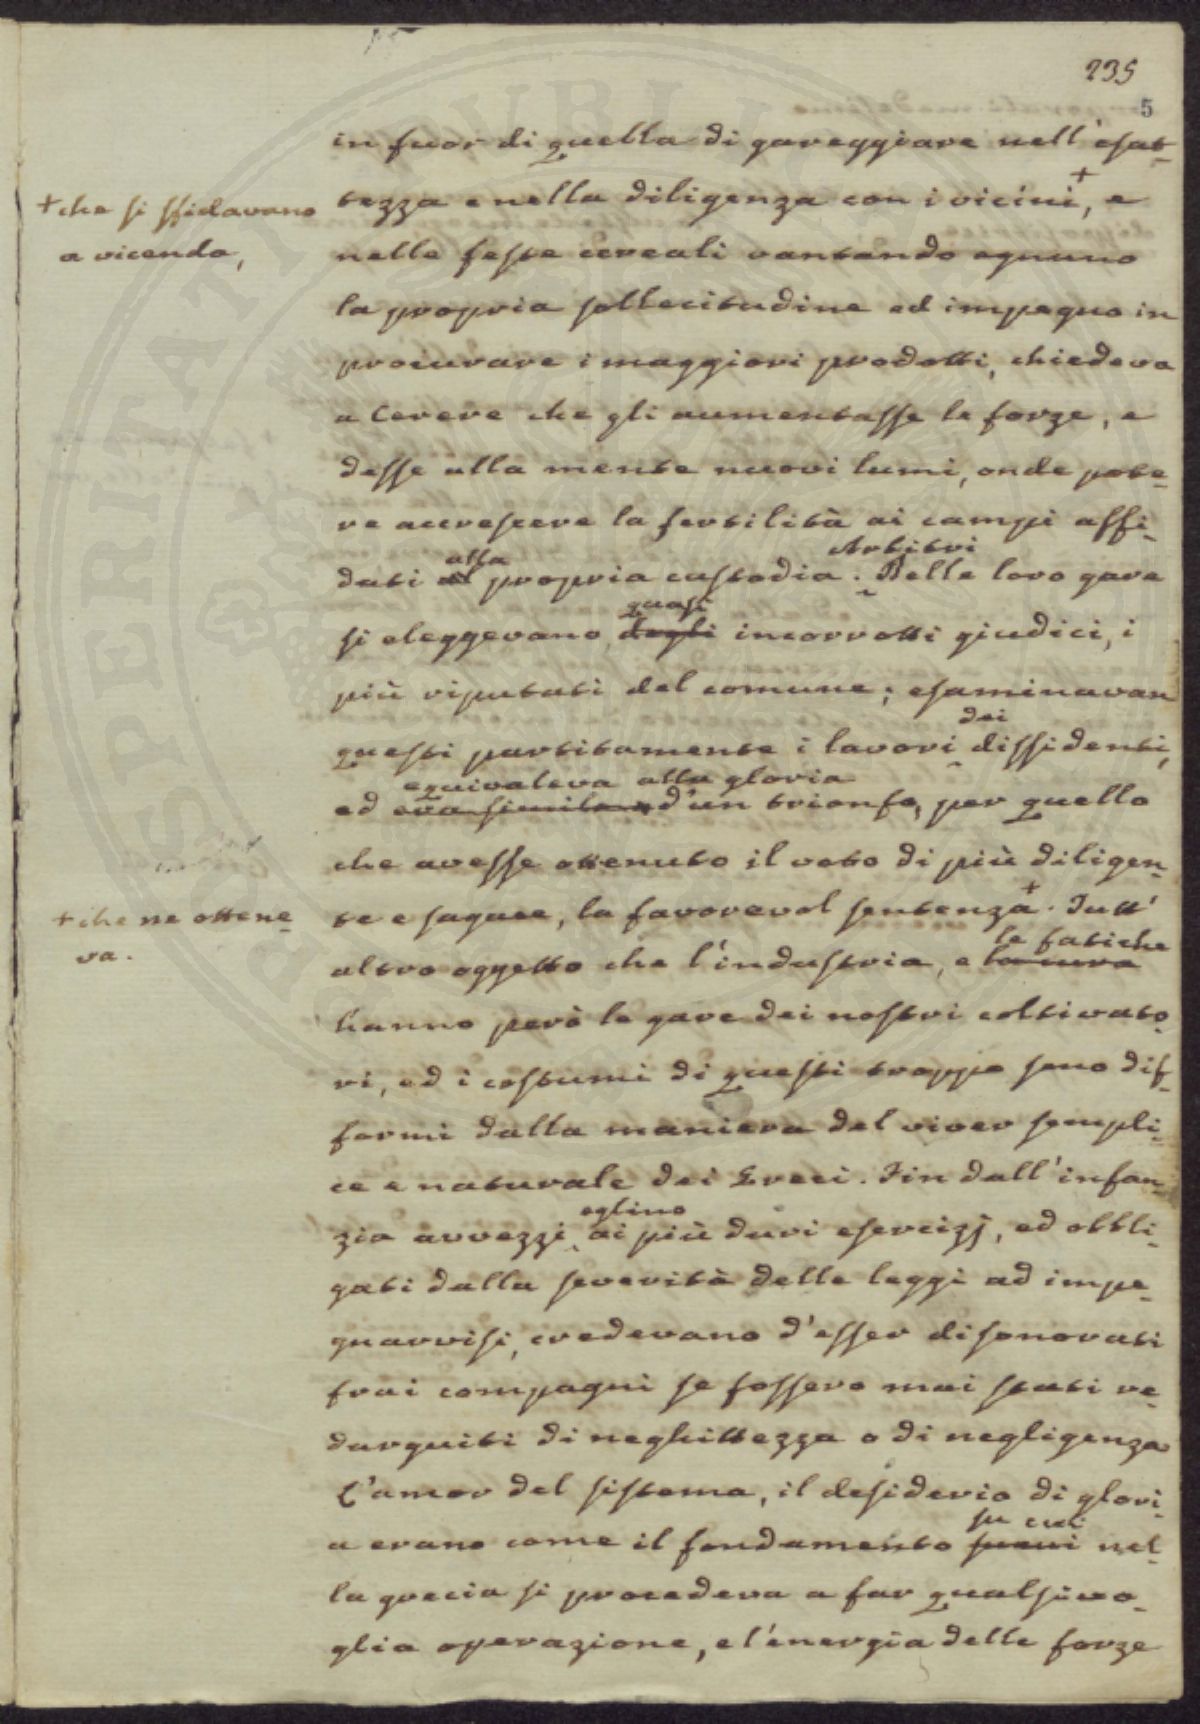 235
5
in fuor di quella di gareggiare nell'esat-
+ che si sfidavano
a vicenda,
tezza e nella diligenza con i vicini+, e
nelle feste cereali vantando ognuno
la propria sollecitudine ed impegno in
procurare i maggiori prodotti, chiedeva
a Cerere che gli aumentasse le forze, e
desse alla mente nuovi lumi, onde pote-
re accrescere la fertilità ai campi affi-
alla Arbitri
dati al propria custodia. Delle loro gare
quasi
si eleggevano, degli incorrotti giudici, i
più riputati del comune; esaminavan
dei
questi partitamente i lavori dissidenti,
equivaleva alla gloria
ed era simile d'un trionfo, per quello
che avesse ottenuto il voto di più diligen-
te e sagace, la favorevol sentenza+. Tutt'
+ che ne ottene-
va.
le fatiche
altro oggetto che l'industria, e la cura
hanno però le gare dei nostri coltivato-
ri, ed i costumi di questi troppo sono dif-
formi dalla maniera del viver sempli-
ce e naturale dei Greci. Fin dall'infan-
eglino
zia avvezzi ai più duri esercizj, ed obbli-
gati dalla severità delle leggi ad impe-
gnarvisi, credevano d'esser disonorati
frai compagni se fossero mai stati re-
darguiti di neghittezza o di negligenza
L'amor del sistema, il desiderio di glori-
su cui
a erano come il fondamento sucui nel-
la grecia si procedeva a far qualsivo-
glia operazione, e l'energia delle forze
PERITATI PUBLICAE